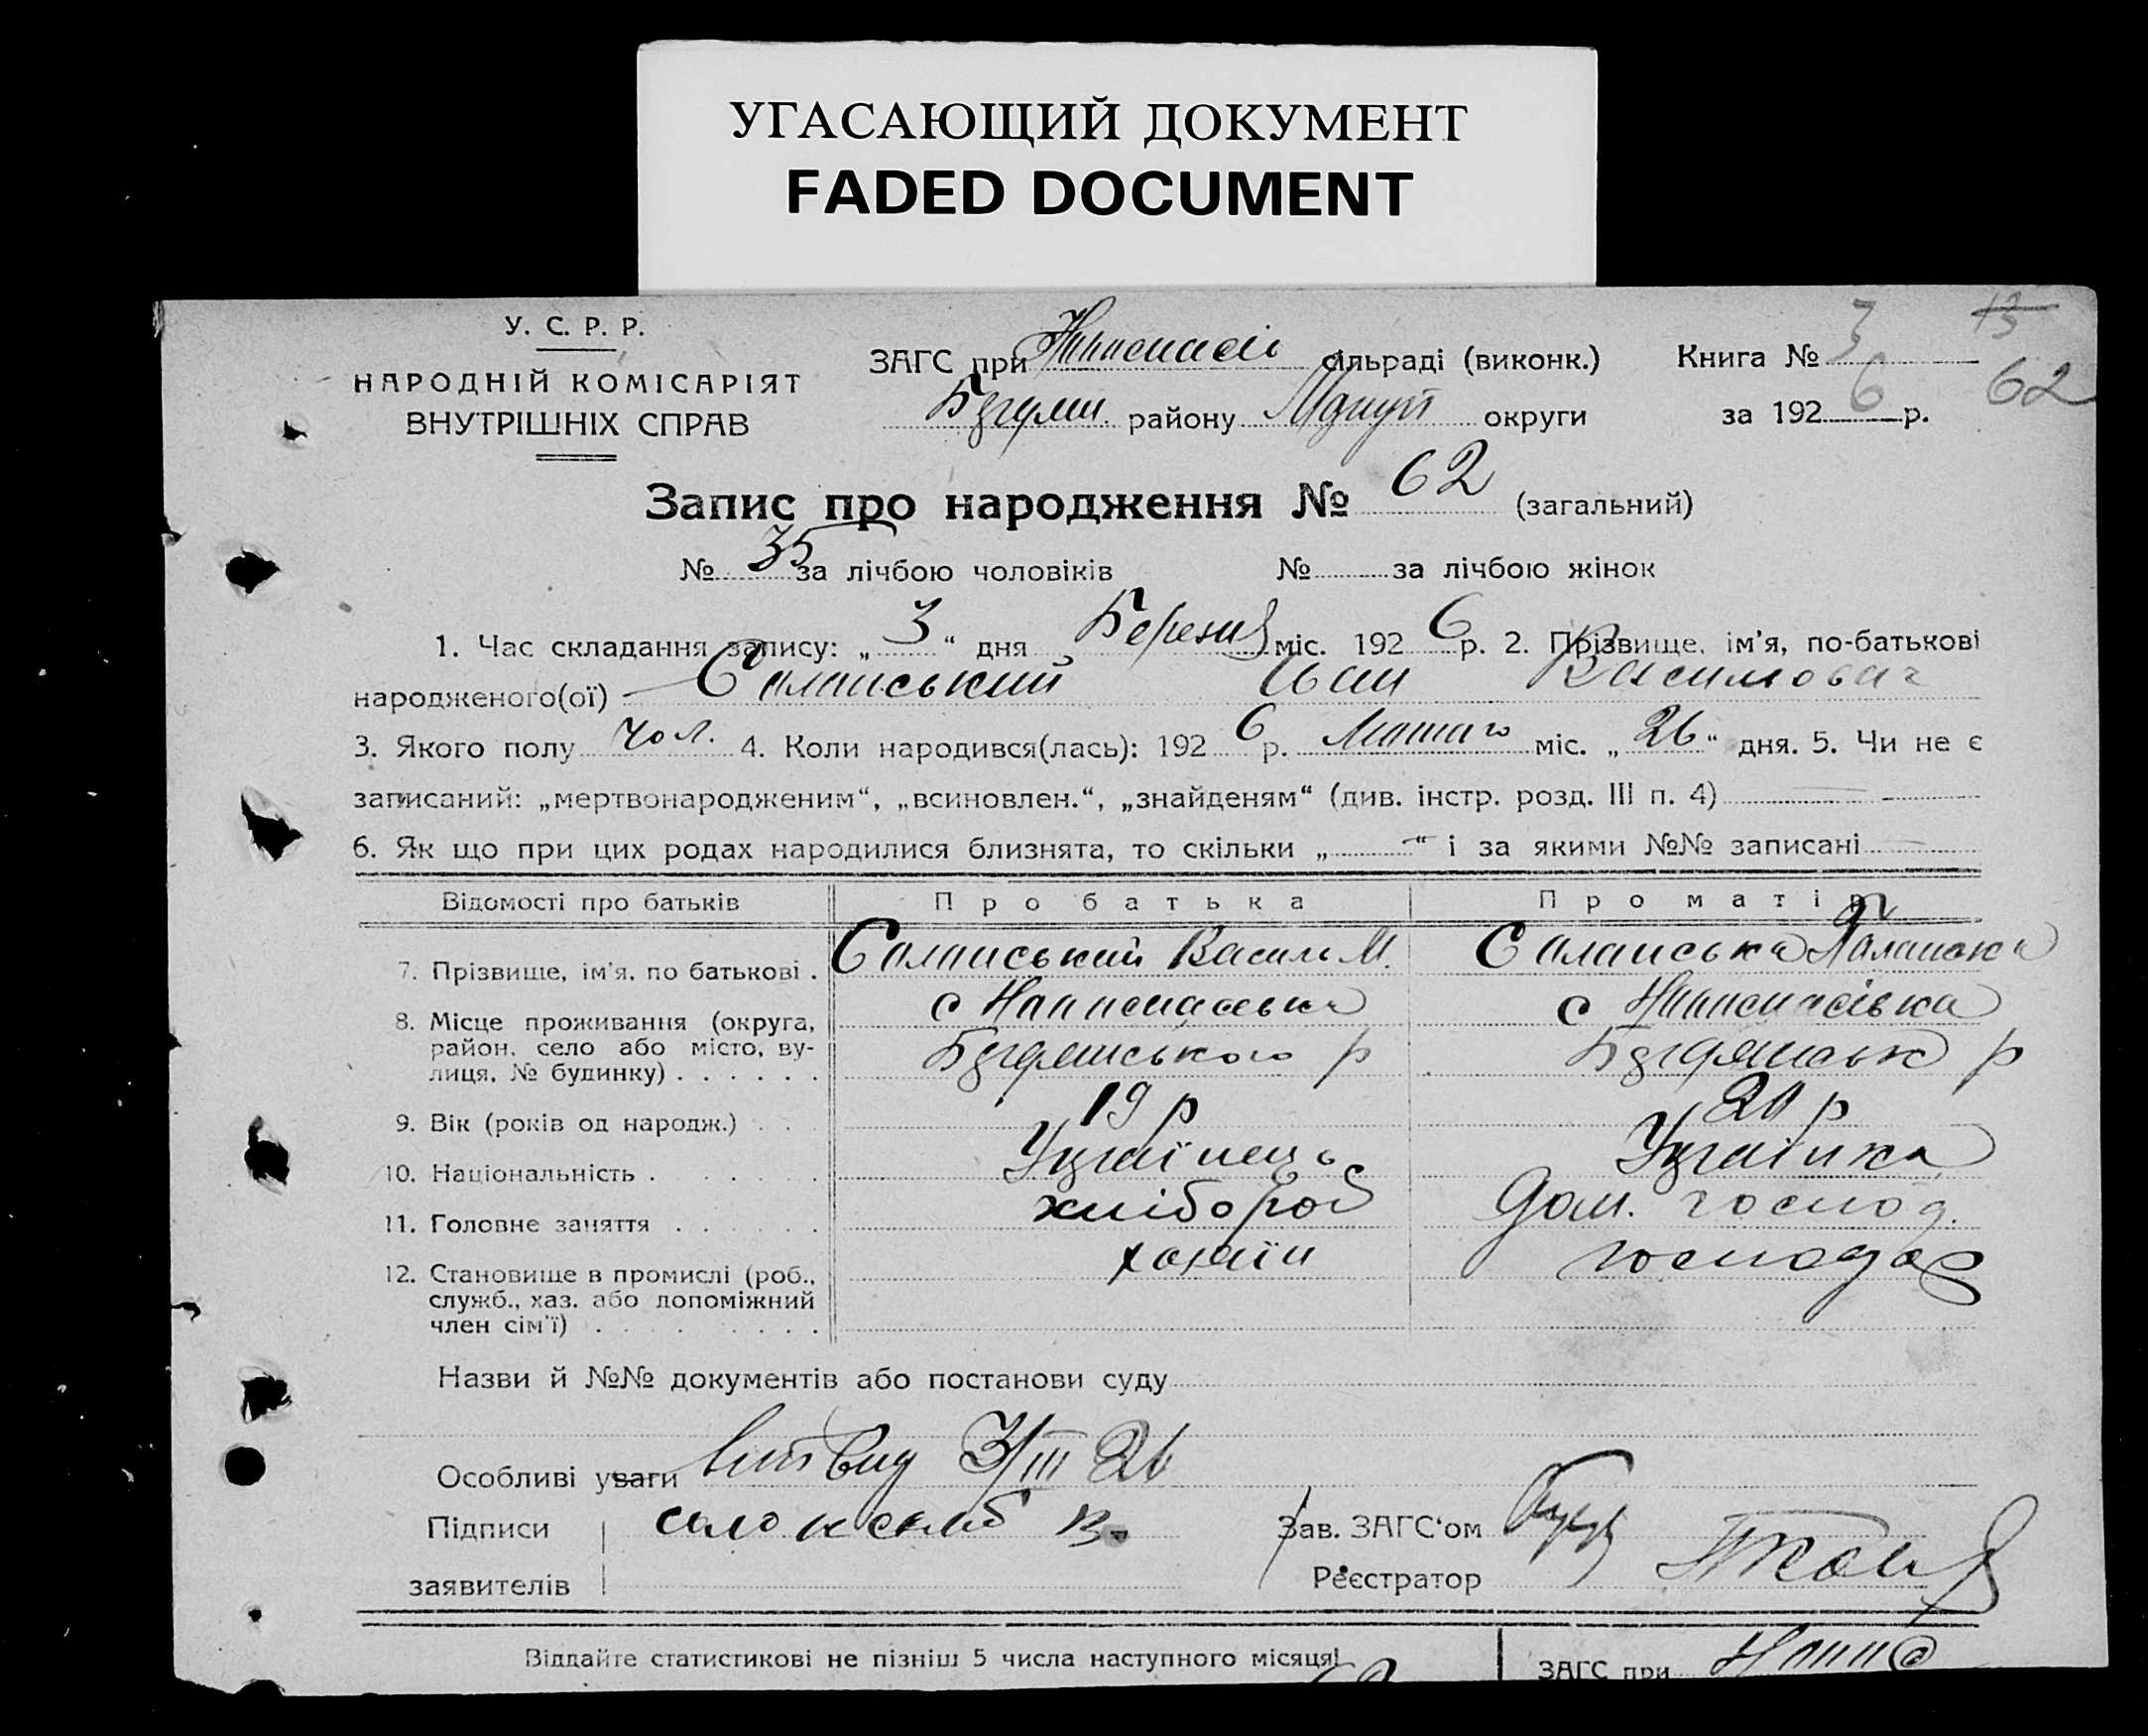 УГАСАЮЩИЙ ДОКУМЕНТ
FADED DOCUMENT
У. С. Р. Р.
НАРОДНІЙ КОМІСАРІЯТ
ВНУТРІШНІХ СПРАВ
ЗАГС при сільраді (виконк.)
району округи
Книга № 3
за 1926 р.
13
62
Запис про народження № 62 (загальний)
№ 35 за лічбою чоловіків № за лічбою жінок
1. Час складання запису: „ 3 “ дня Березня міс. 1926 р. 2. Прізвище, ім'я, по-батькові
народженого(ої) Саланський Іван Васильович
3. Якого полу чол. 4. Коли народився(лась): 1926 р. Лютого міс. „ 26 “ дня. 5. Чи не є
записаний: „мертвонародженим“, „всиновлен.“, „знайденям“ (див. інстр. розд. III п. 4)
6. Як що при цих родах народилися близнята, то скільки „ — “ і за якими №№ записані
Відомості про батьків Про батька Про матір
7. Прізвище, ім'я, по батькові . Саланський Василь М. Саланська
8. Місце проживання (округа, район, село або місто, вулиця, № будинку) . . . . . .
с
р
с
р
9. Вік (років од народж.) . . 19 р 20 р
10. Національність . Українець Українка
11. Головне заняття . хлібороб Дом. господ.
12. Становище в промислі (роб., служб., хаз. або допоміжний член сім'ї) . хазяїн господар
Назви й №№ документів або постанови суду
Особливі уваги 3/III 26
Підписи
заявителів
Зав. ЗАГС‘ом
Реєстратор
Віддайте статистикові не пізніш 5 числа наступного місяця!
ЗАГС при